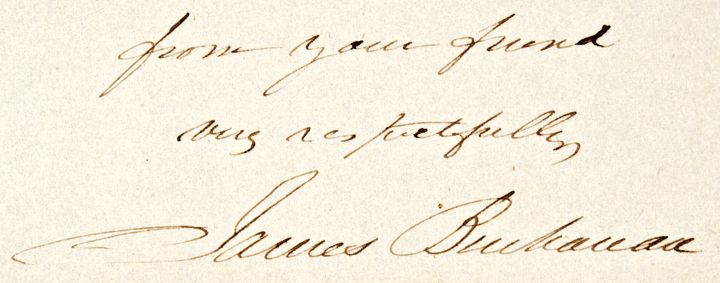 from your friend
very respectfully
James Buchanan